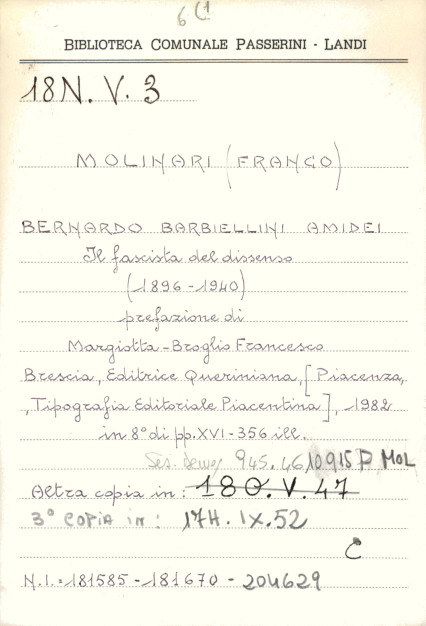 6 C1
BIBLIOTECA COMUNALE PASSERINI - LANDI
18N. V. 3
MOLINARI (FRANCO)
BERNARDO BARBIELLINI AMIDEI
Il fascista del dissenso
(1896 - 1940)
prefazione di
Margiotta - Broglio Francesco
Brescia, Editrice Queriniana, [Piacenza,
, Tipografia Editoriale Piacentina], 1982
in 8° di pp. XVI - 356 ill.
945.46 10915 P MOL
Altra copia in: 180.V.47
3° COPIA in: 17H. IX. 52
C
N.I. = 181585 - 181670 - 204629